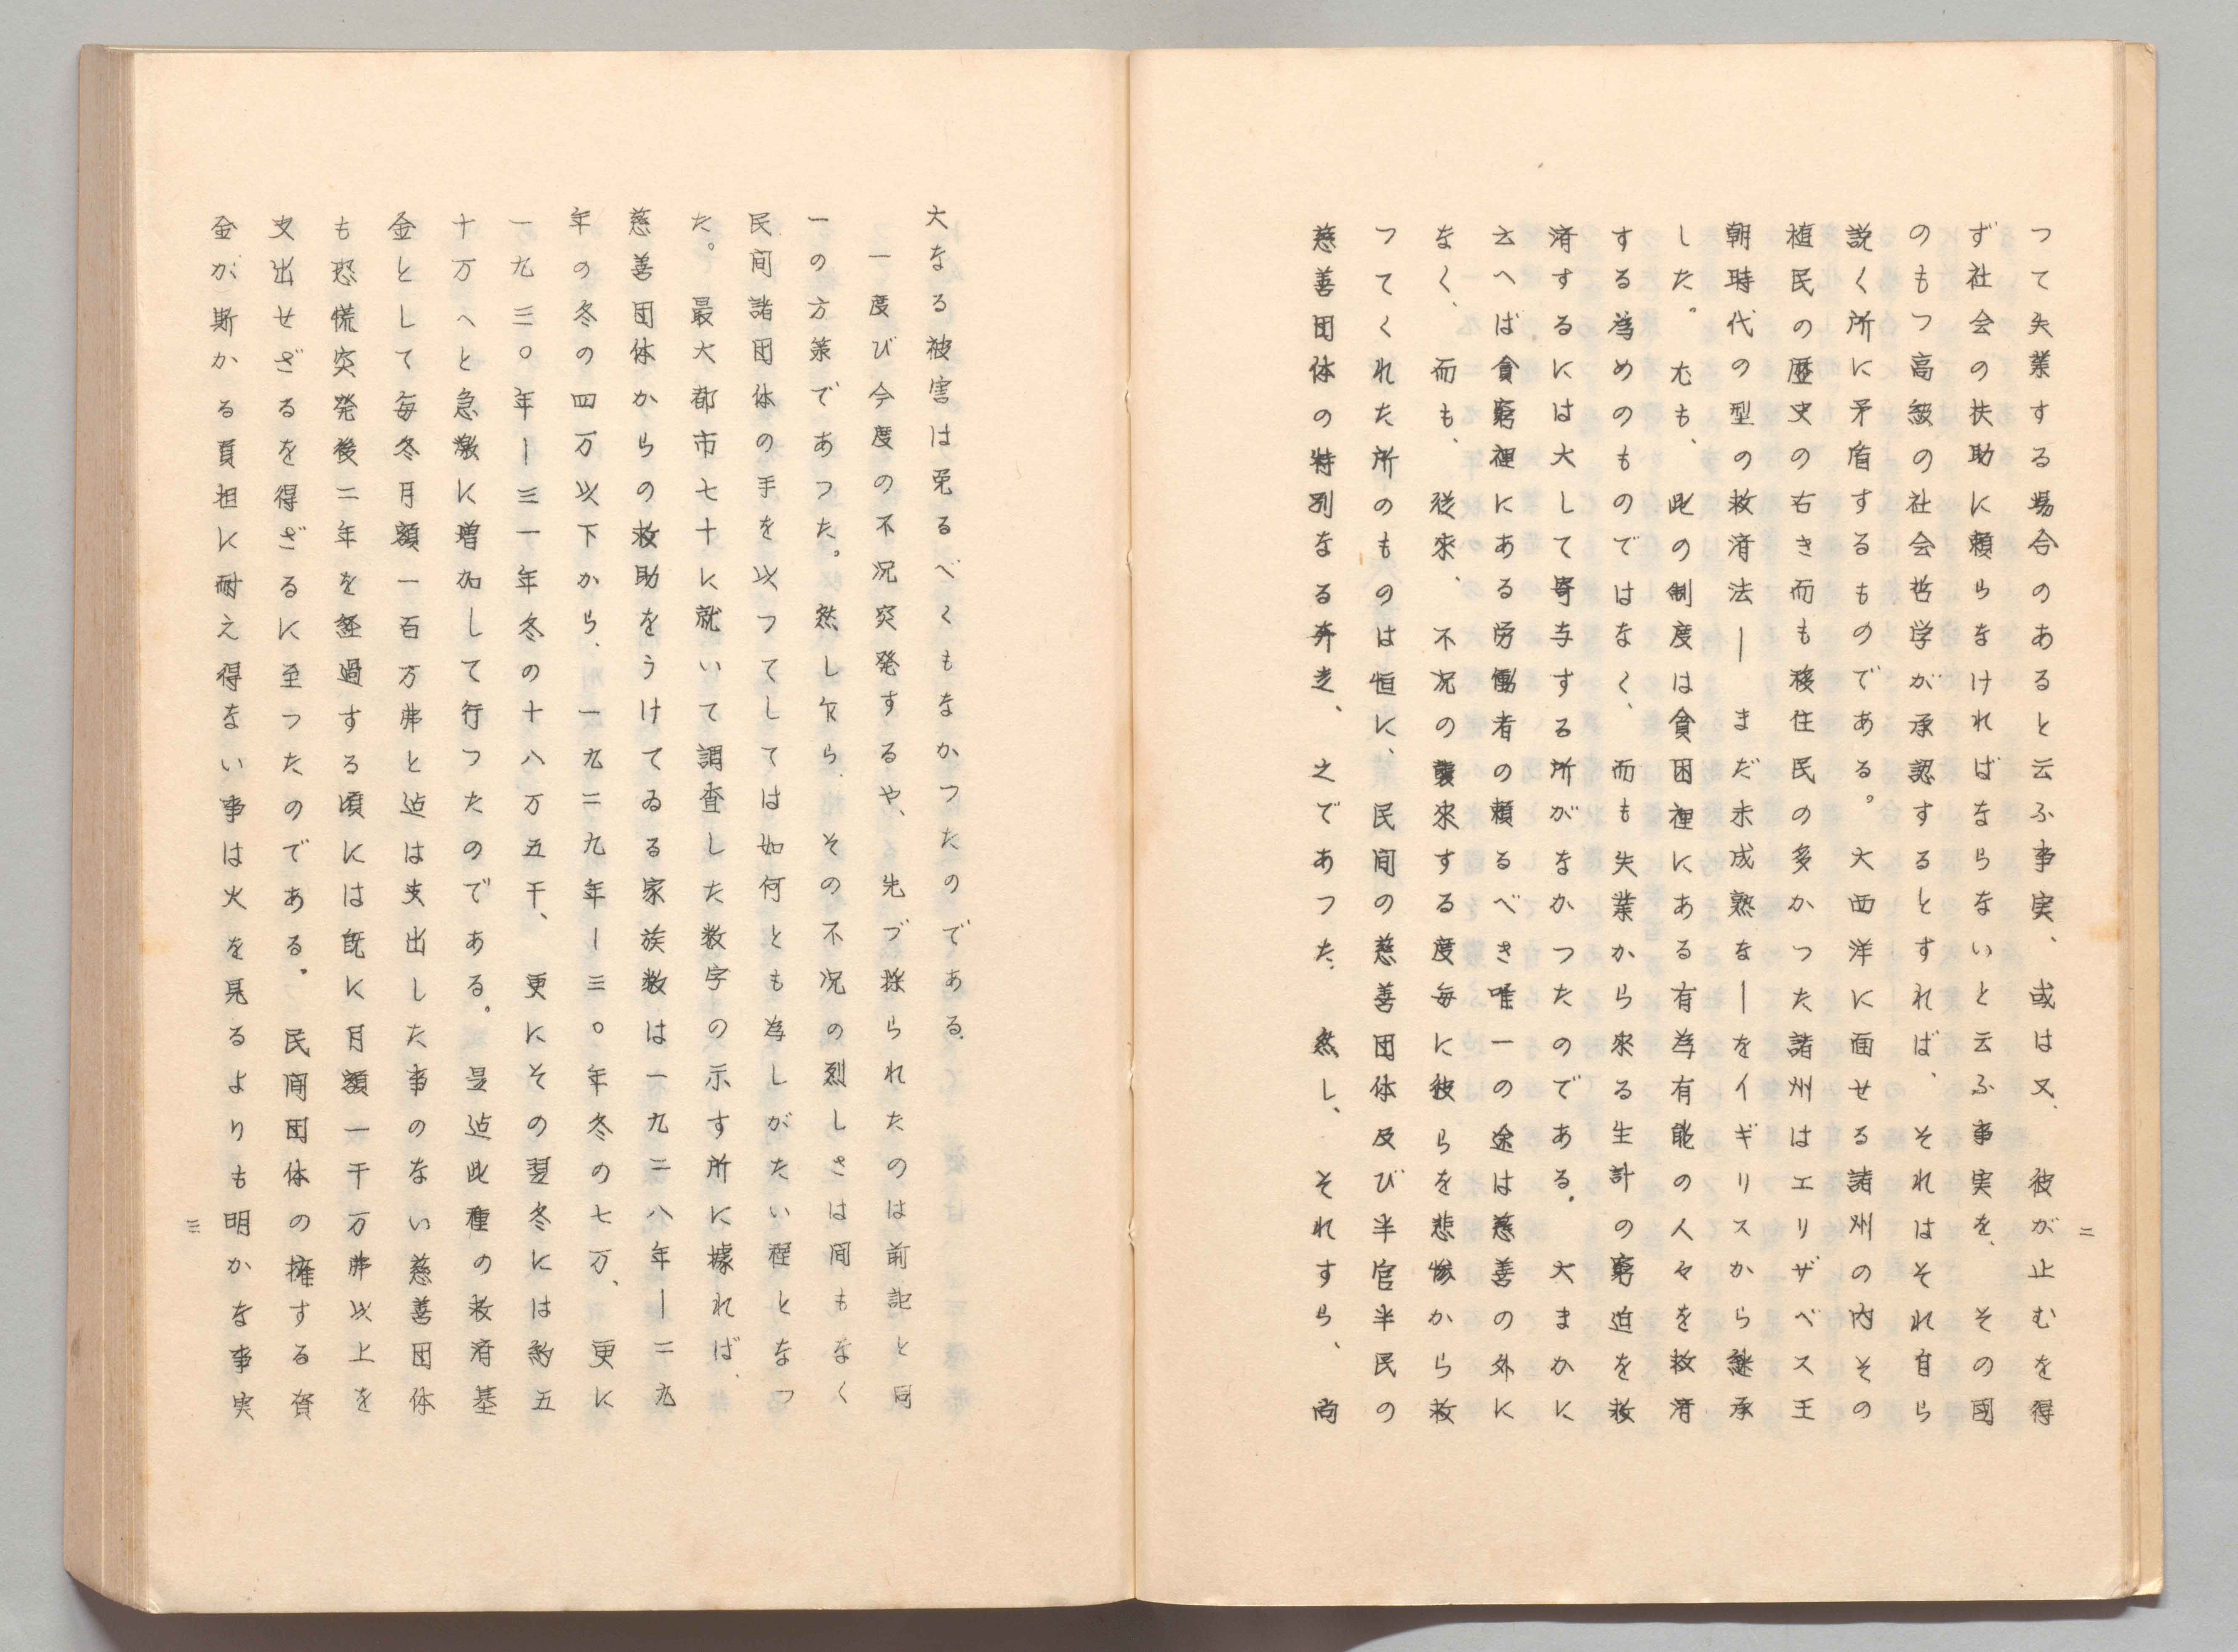 二
つて失業する場合のあると云ふ事実、或は又、彼が止むを得
ず社会の扶助に頼らなければならないと云ふ事実を、その国
のもつ高級の社会哲学が承認するとすれば、それはそれ自ら
説く所に矛盾するものである。大西洋に面せる諸州の内その
植民の歴史の右き而も移住民の多かつた諸州はエリザベス王
朝時代の型の救済法―まだ未成熟な―をイギリスから継承
した。尤も、此の制度は貧困裡にある有為有能の人々を救済
する為めのものではなく、而も失業から来る生計の窮迫を救
済するには大して寄与する所がなかつたのである。大まかに
云へば貧窮裡にある労働者の頼るべき唯一の途は慈善の外に
なく、而も、従来、不況の襲来する度毎に彼らを悲惨から救
つてくれた所のものは恒に、民間の慈善団体及び半官半民の
慈善団体の特別なる奔走、之であつた、然し、それすら、尚
大なる被害は免るべくもなかつたのである、
一度び今度の不況突発するや、先づ採られたのは前記と同
一の方策であつた。然し乍ら、その不況の烈しさは間もなく
民間諸団体の手を以つてしては如何とも為しがたい程となつ
た。最大都市七十に就いて調査した数字の示す所に據れば、
慈善団体からの救助をうけてゐる家族数は一九二八年―二九
年の冬の四万以下から、一九二九年―三〇年冬の七万、更に
一九三〇年―三一年冬の十八万五千、更にその翌冬には約五
十万へと急激に増加して行つたのである。是迠此種の救済基
金として毎冬月額一百万弗と迠は支出した事のない慈善団体
も恐慌突発後二年を経過する頃には既に月額一千万弗以上を
支出せざるを得ざるに至つたのである。民間団体の擁する資
金が斯かる負担に耐え得ない事は火を見るよりも明かな事実
三